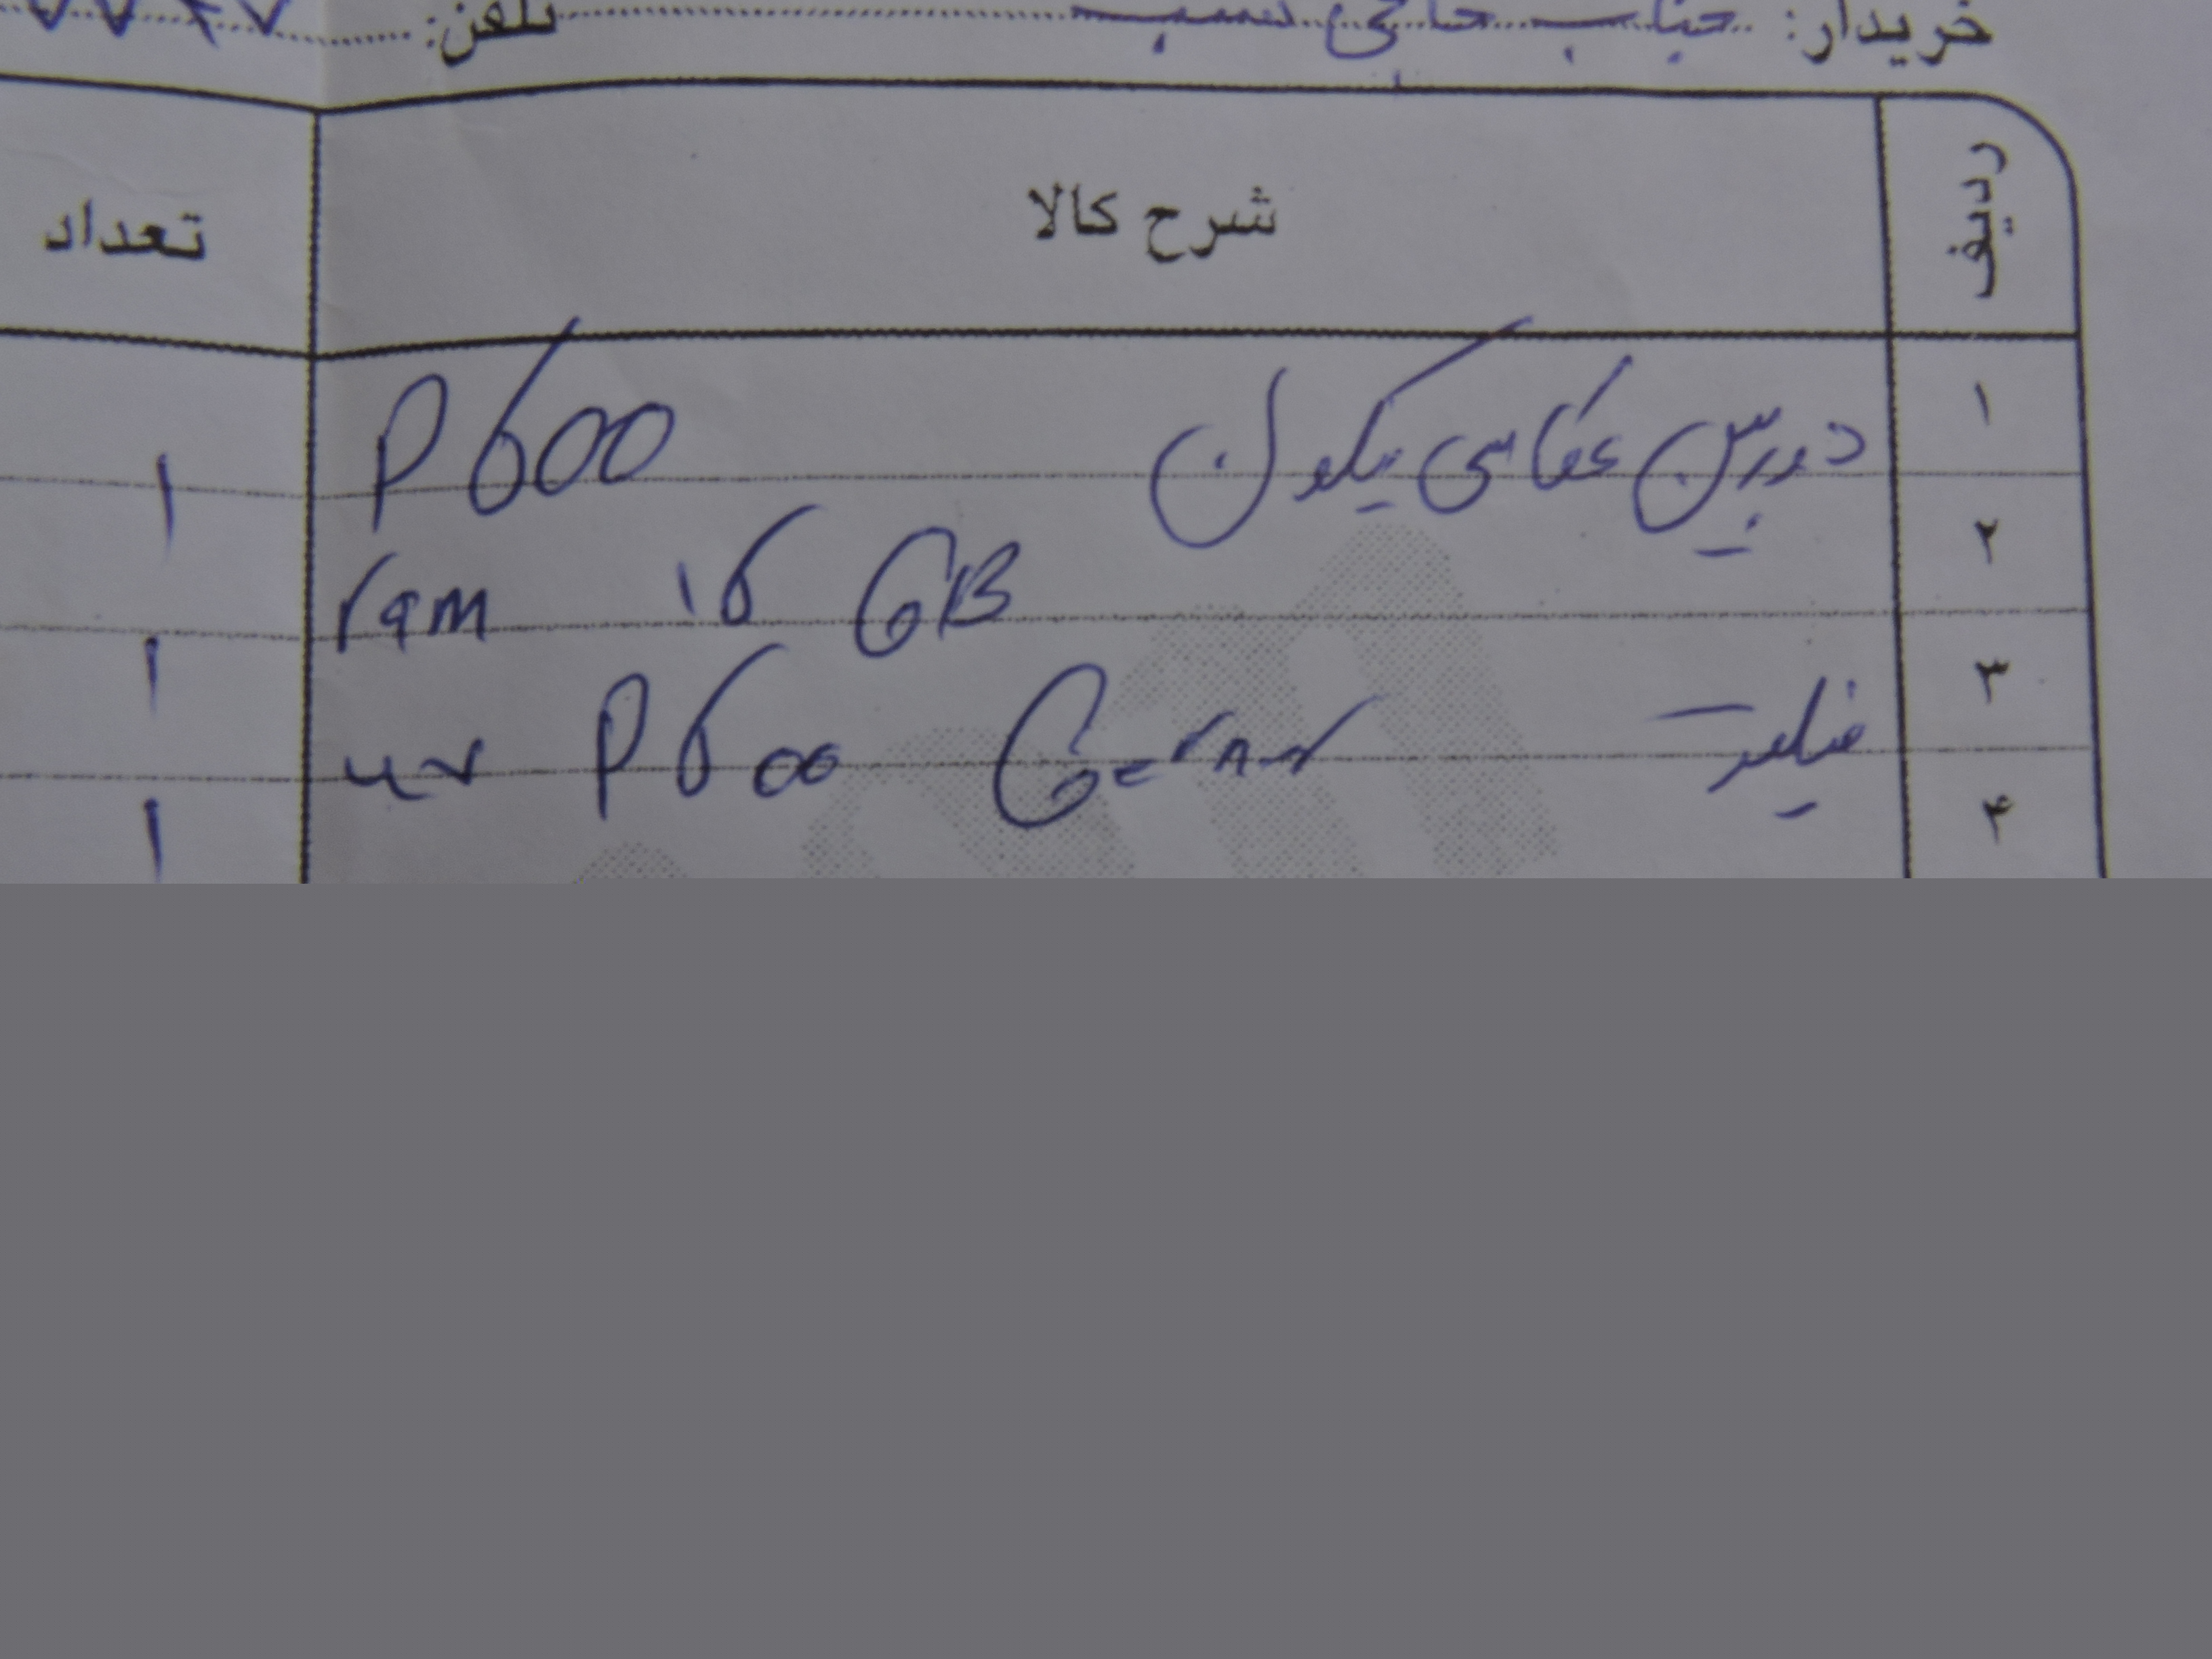 خریدار: جناب حاجی نسب تلفن:
ردیف شرح کالا تعداد
۱ دوربین عکاسی نیکون P600 ۱
۲ ram ۱۶ GB ۱
۳ فیلتر uv P600 ۱
۴